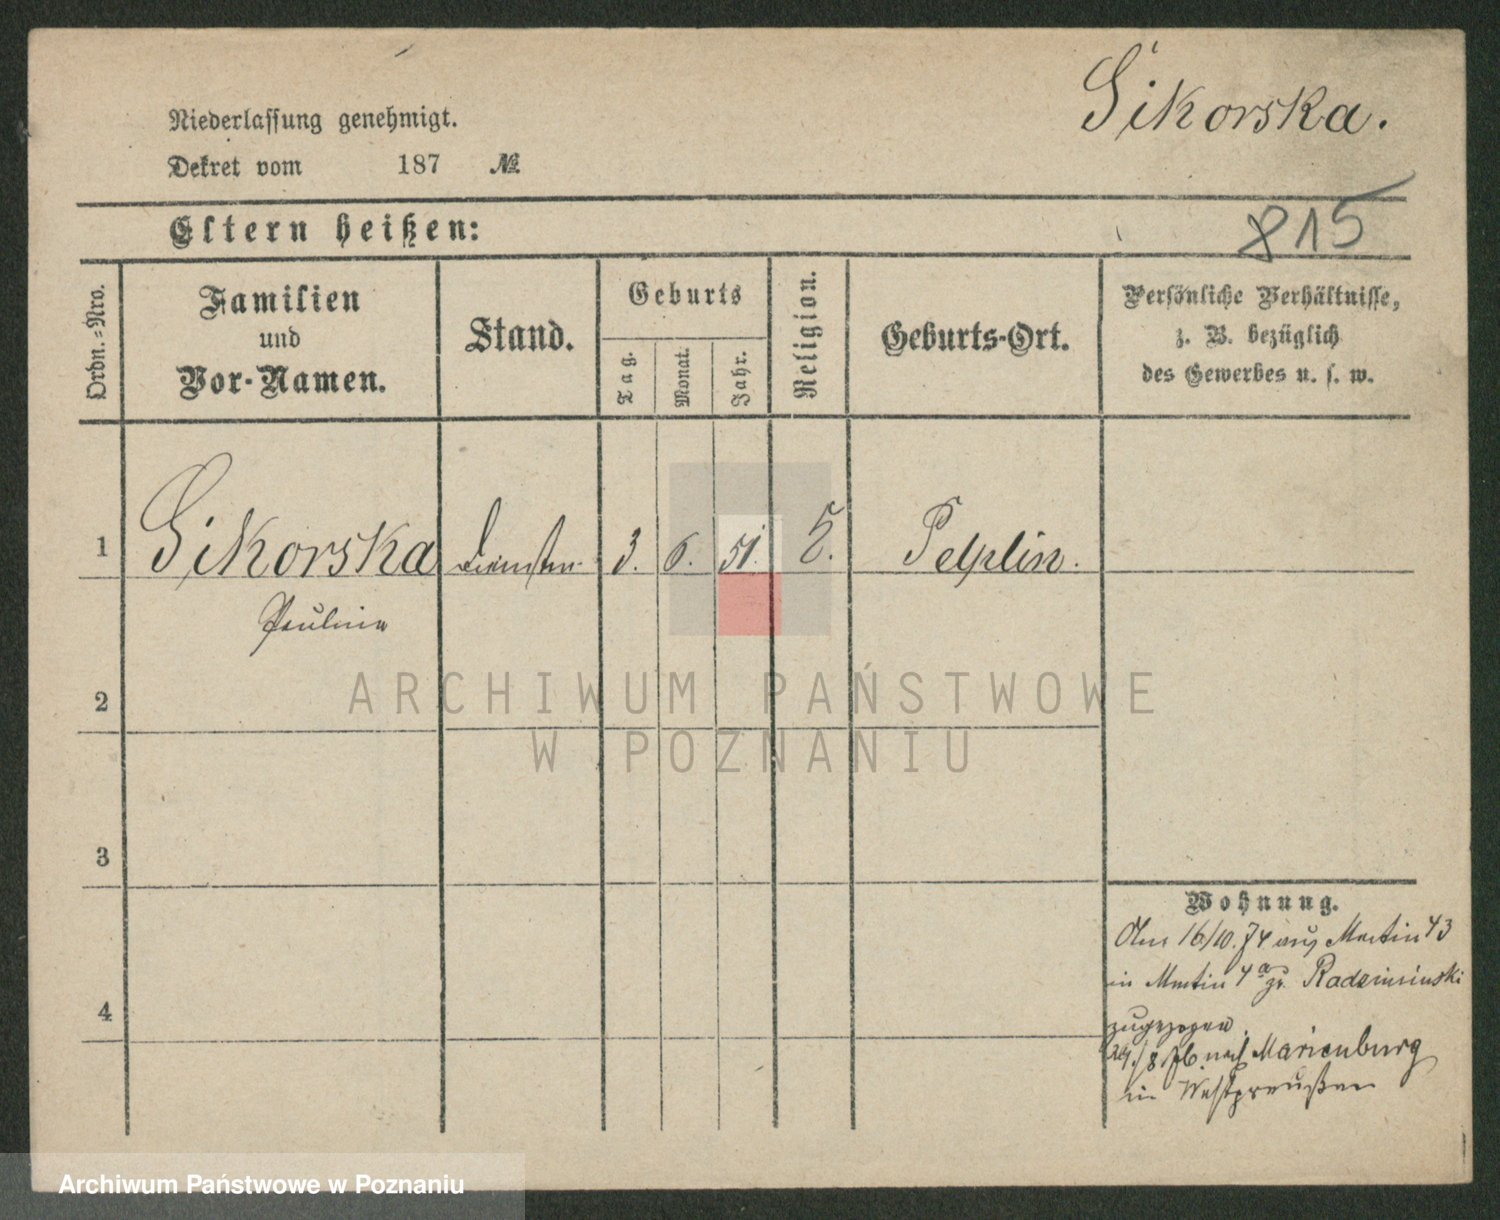 Sikorska.
Niederlassung genehmigt.
Dekret vom 187 №
815
Eltern heißen:
Ordn.-Nro.
Familien
und
Vor-Namen.
Stand.
Geburts
Tag.
Monat.
Jahr.
Religion.
Geburts-Ort.
Persönliche Verhältnisse,
z. B. bezüglich
des Gewerbes u. s. w.
1 Sikorska 3. 6. 51. Pelplin.
Paulina
2
3
4
Wohnung.
16/10. 74 aus Martin 43
in Martin 4a zu
zugezogen.
/8 76 nach Marienburg
in Westpreußen
ARCHIWUM PAŃSTWOWE
W POZNANIU
Archiwum Państwowe w Poznaniu